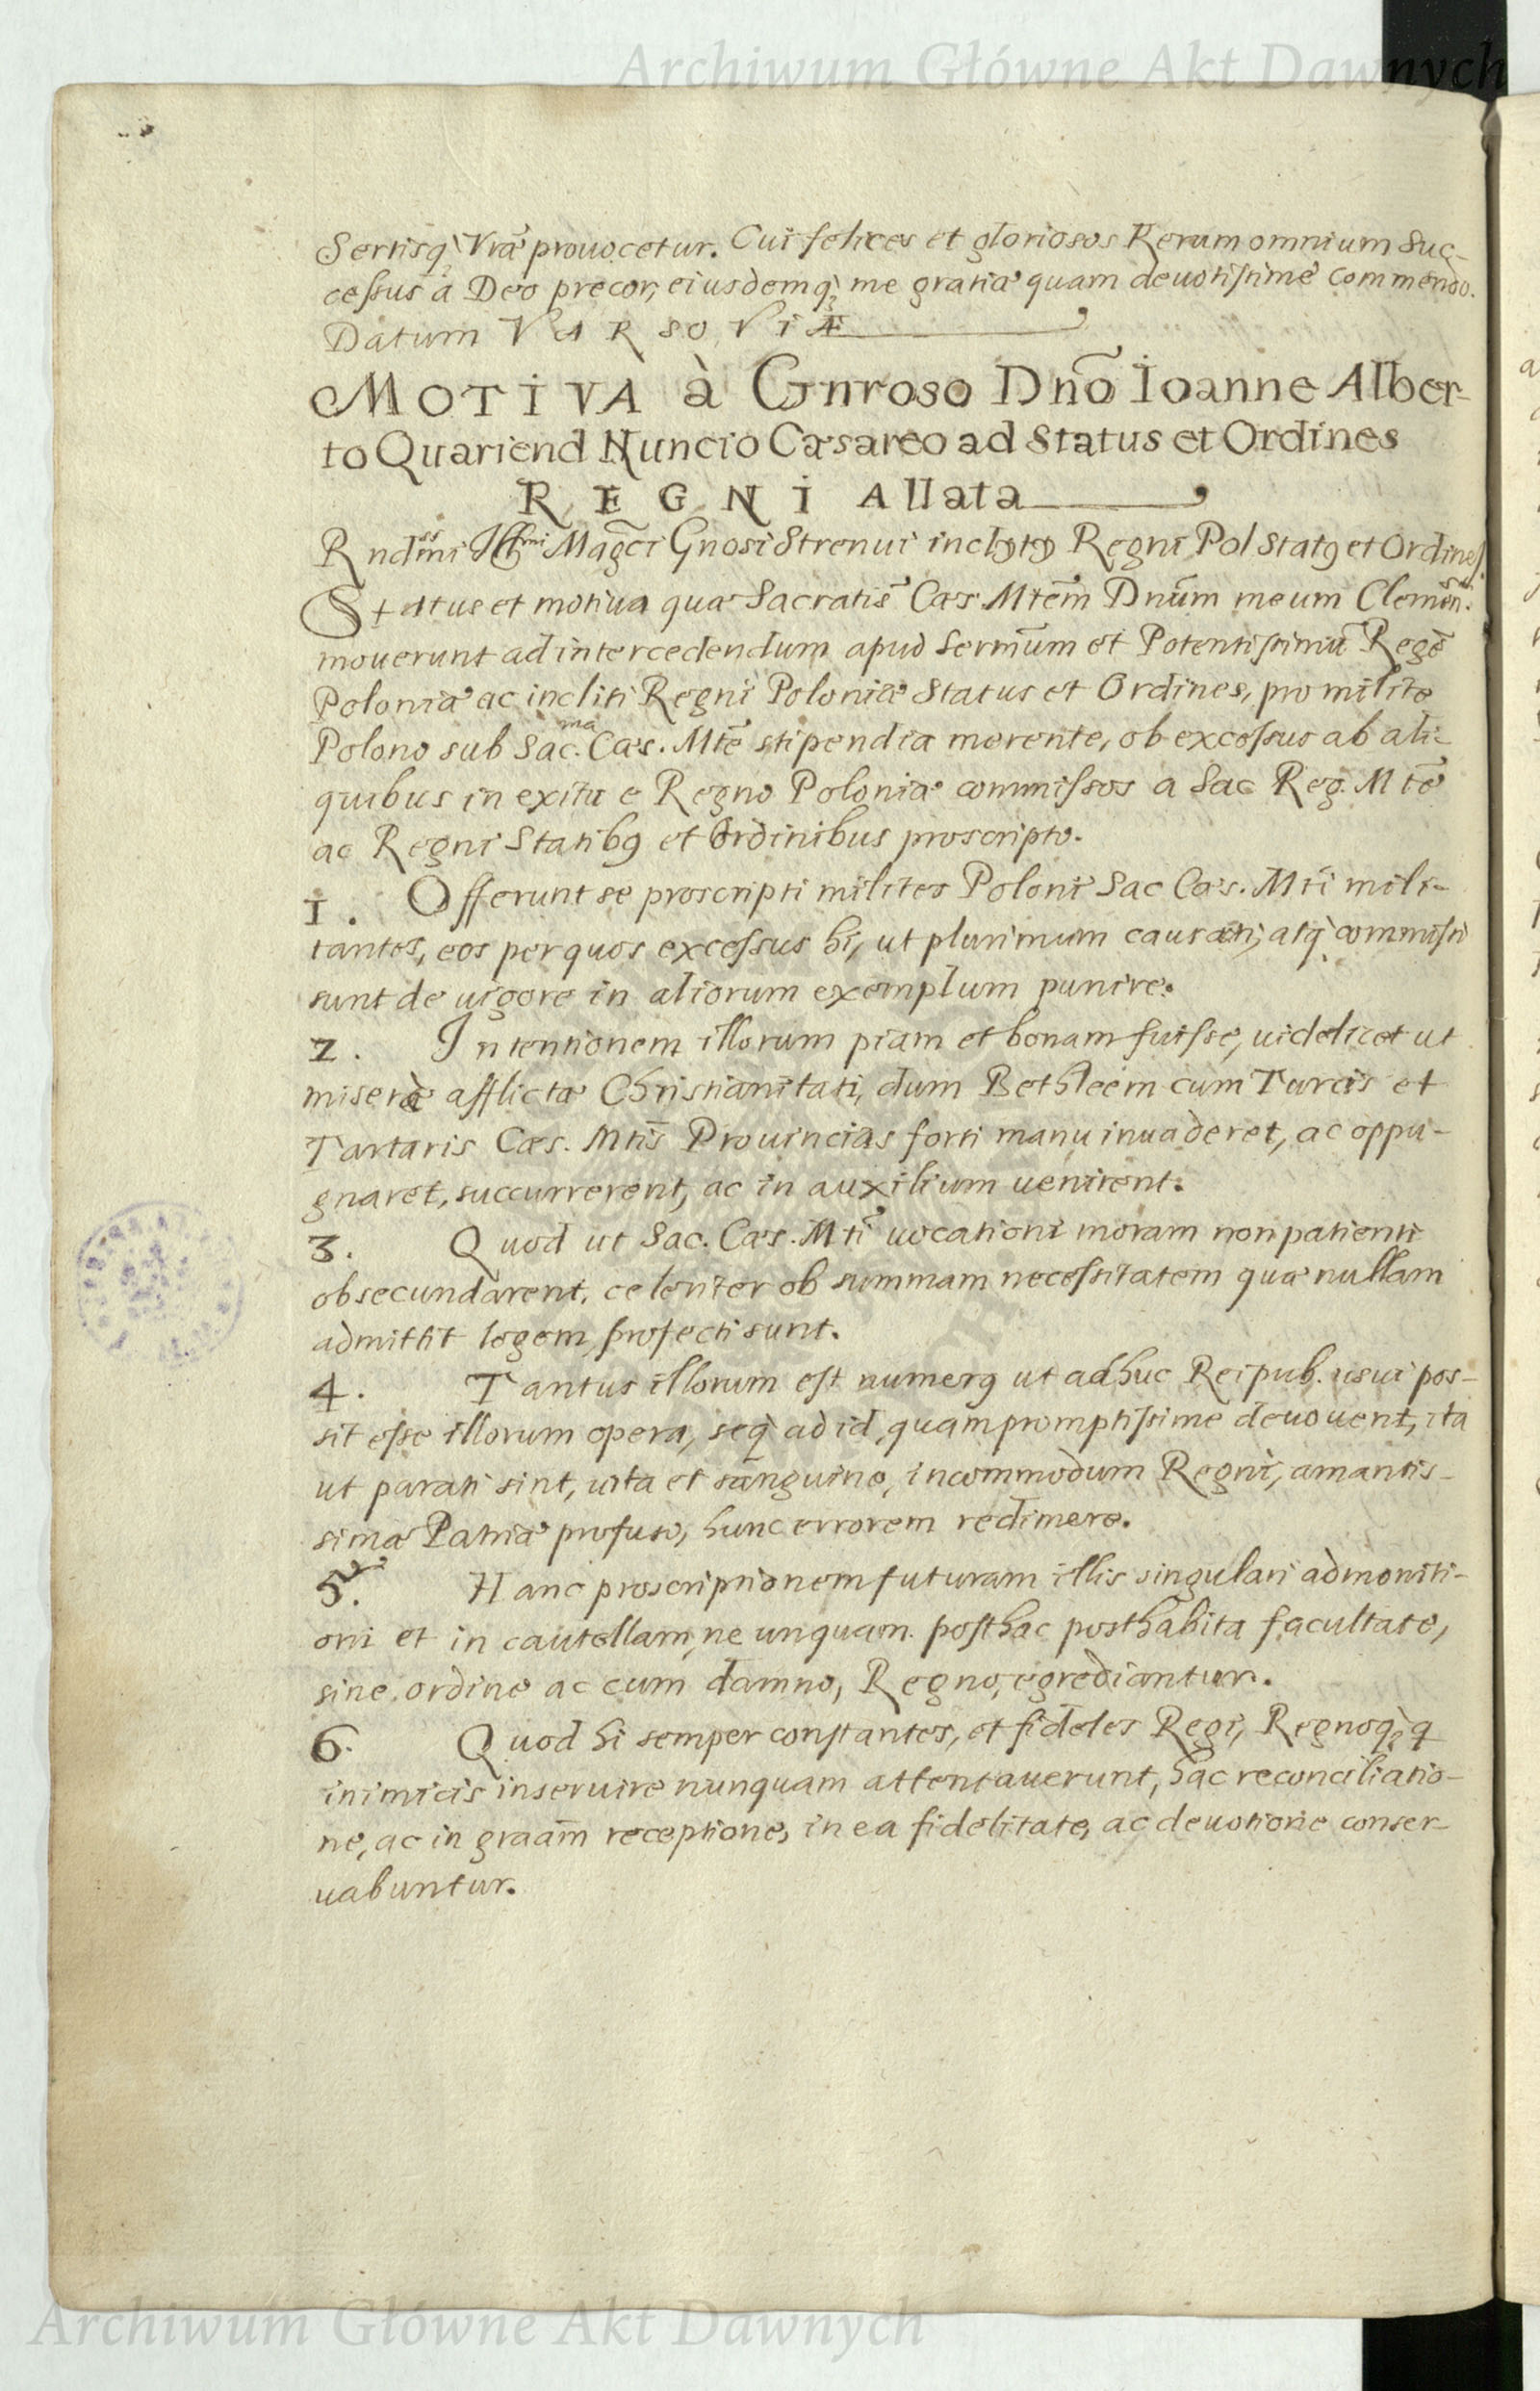 Archiwum Główne Akt Dawnych
Sertisq̀ Vrã prouocetur. Cui felices et gloriosos Rerum omnium Suc-
cessus à Deo precor, eiusdemq̀ me gratiæ quam deuotissimè commendo.
Datum VARSOVIÆ
MOTIVA à Gnroso Dnõ Ioanne Alber-
to Quariend Nuncio Cæsareo ad Status et Ordines
REGNI Allata
Rndmi Illmi Magci Gnosi Strenui inclyty Regni Pol Statꝯ et Ordines.
Status et motiua quæ Sacratis̃ Cæs. Mtem̃ Dnum̃ meum Clemen.
mouerunt ad intercedendum apud Sermum̃ et Potentissimũ Regẽ
Poloniæ ac incliti Regni Poloniæ Status et Ordines, pro milite
Polono sub Sac.ma Cæs. Mtẽ stipendia merente, ob excessus ab ali-
quibus in exitu e Regno Poloniæ commissos a Sac Reg. Mtẽ
ac Regni Statibꝯ et Ordinibus proscripto.
1. Offerunt se proscripti milites Poloni Sac Cæs. Mti mili-
tantes, eos per quos excessus hi, ut plurimum causati, atq̀ commissi
sunt de uigore in aliorum exemplum punire.
2. Intentionem illorum piam et bonam fuisse, uidelicet ut
miserè afflictæ Christianitati, dum Bethleem cum Turcis et
Tartaris Cæs. Mtis̃ Prouincias forti manu inuaderet, ac oppu-
gnaret, succurrerent, ac in auxilium uenirent.
3. Quod ut Sac. Cæs. Mti uocationi moram non patienti
obsecundarent, celeriter ob summam necessitatem quæ nullam
admittit legem, profecti sunt.
4. Tantus illorum est numerꝯ ut adhuc Reipub. usui pos-
sit esse illorum opera, seq̀ ad id quampromptissime deuouent, ita
ut parati sint, uita et sanguine, incommodum Regni, amantis-
simæ Patriæ profuso, hunc errorem redimere.
5. Hanc proscriptionem futuram illis singulari admoniti-
oni et in cautellam, ne unquam posthac posthabita facultate,
sine ordine ac cum damno, Regno, egrediantur.
6. Quod hi semper constantes, et fideles Regi, Regnoq̀, q
inimicis inseruire nunquam attentauerunt, hac reconciliatio-
ne, ac in graam̃ receptione, in ea fidelitate, ac deuotione conser-
uabuntur.
Archiwum Główne Akt Dawnych